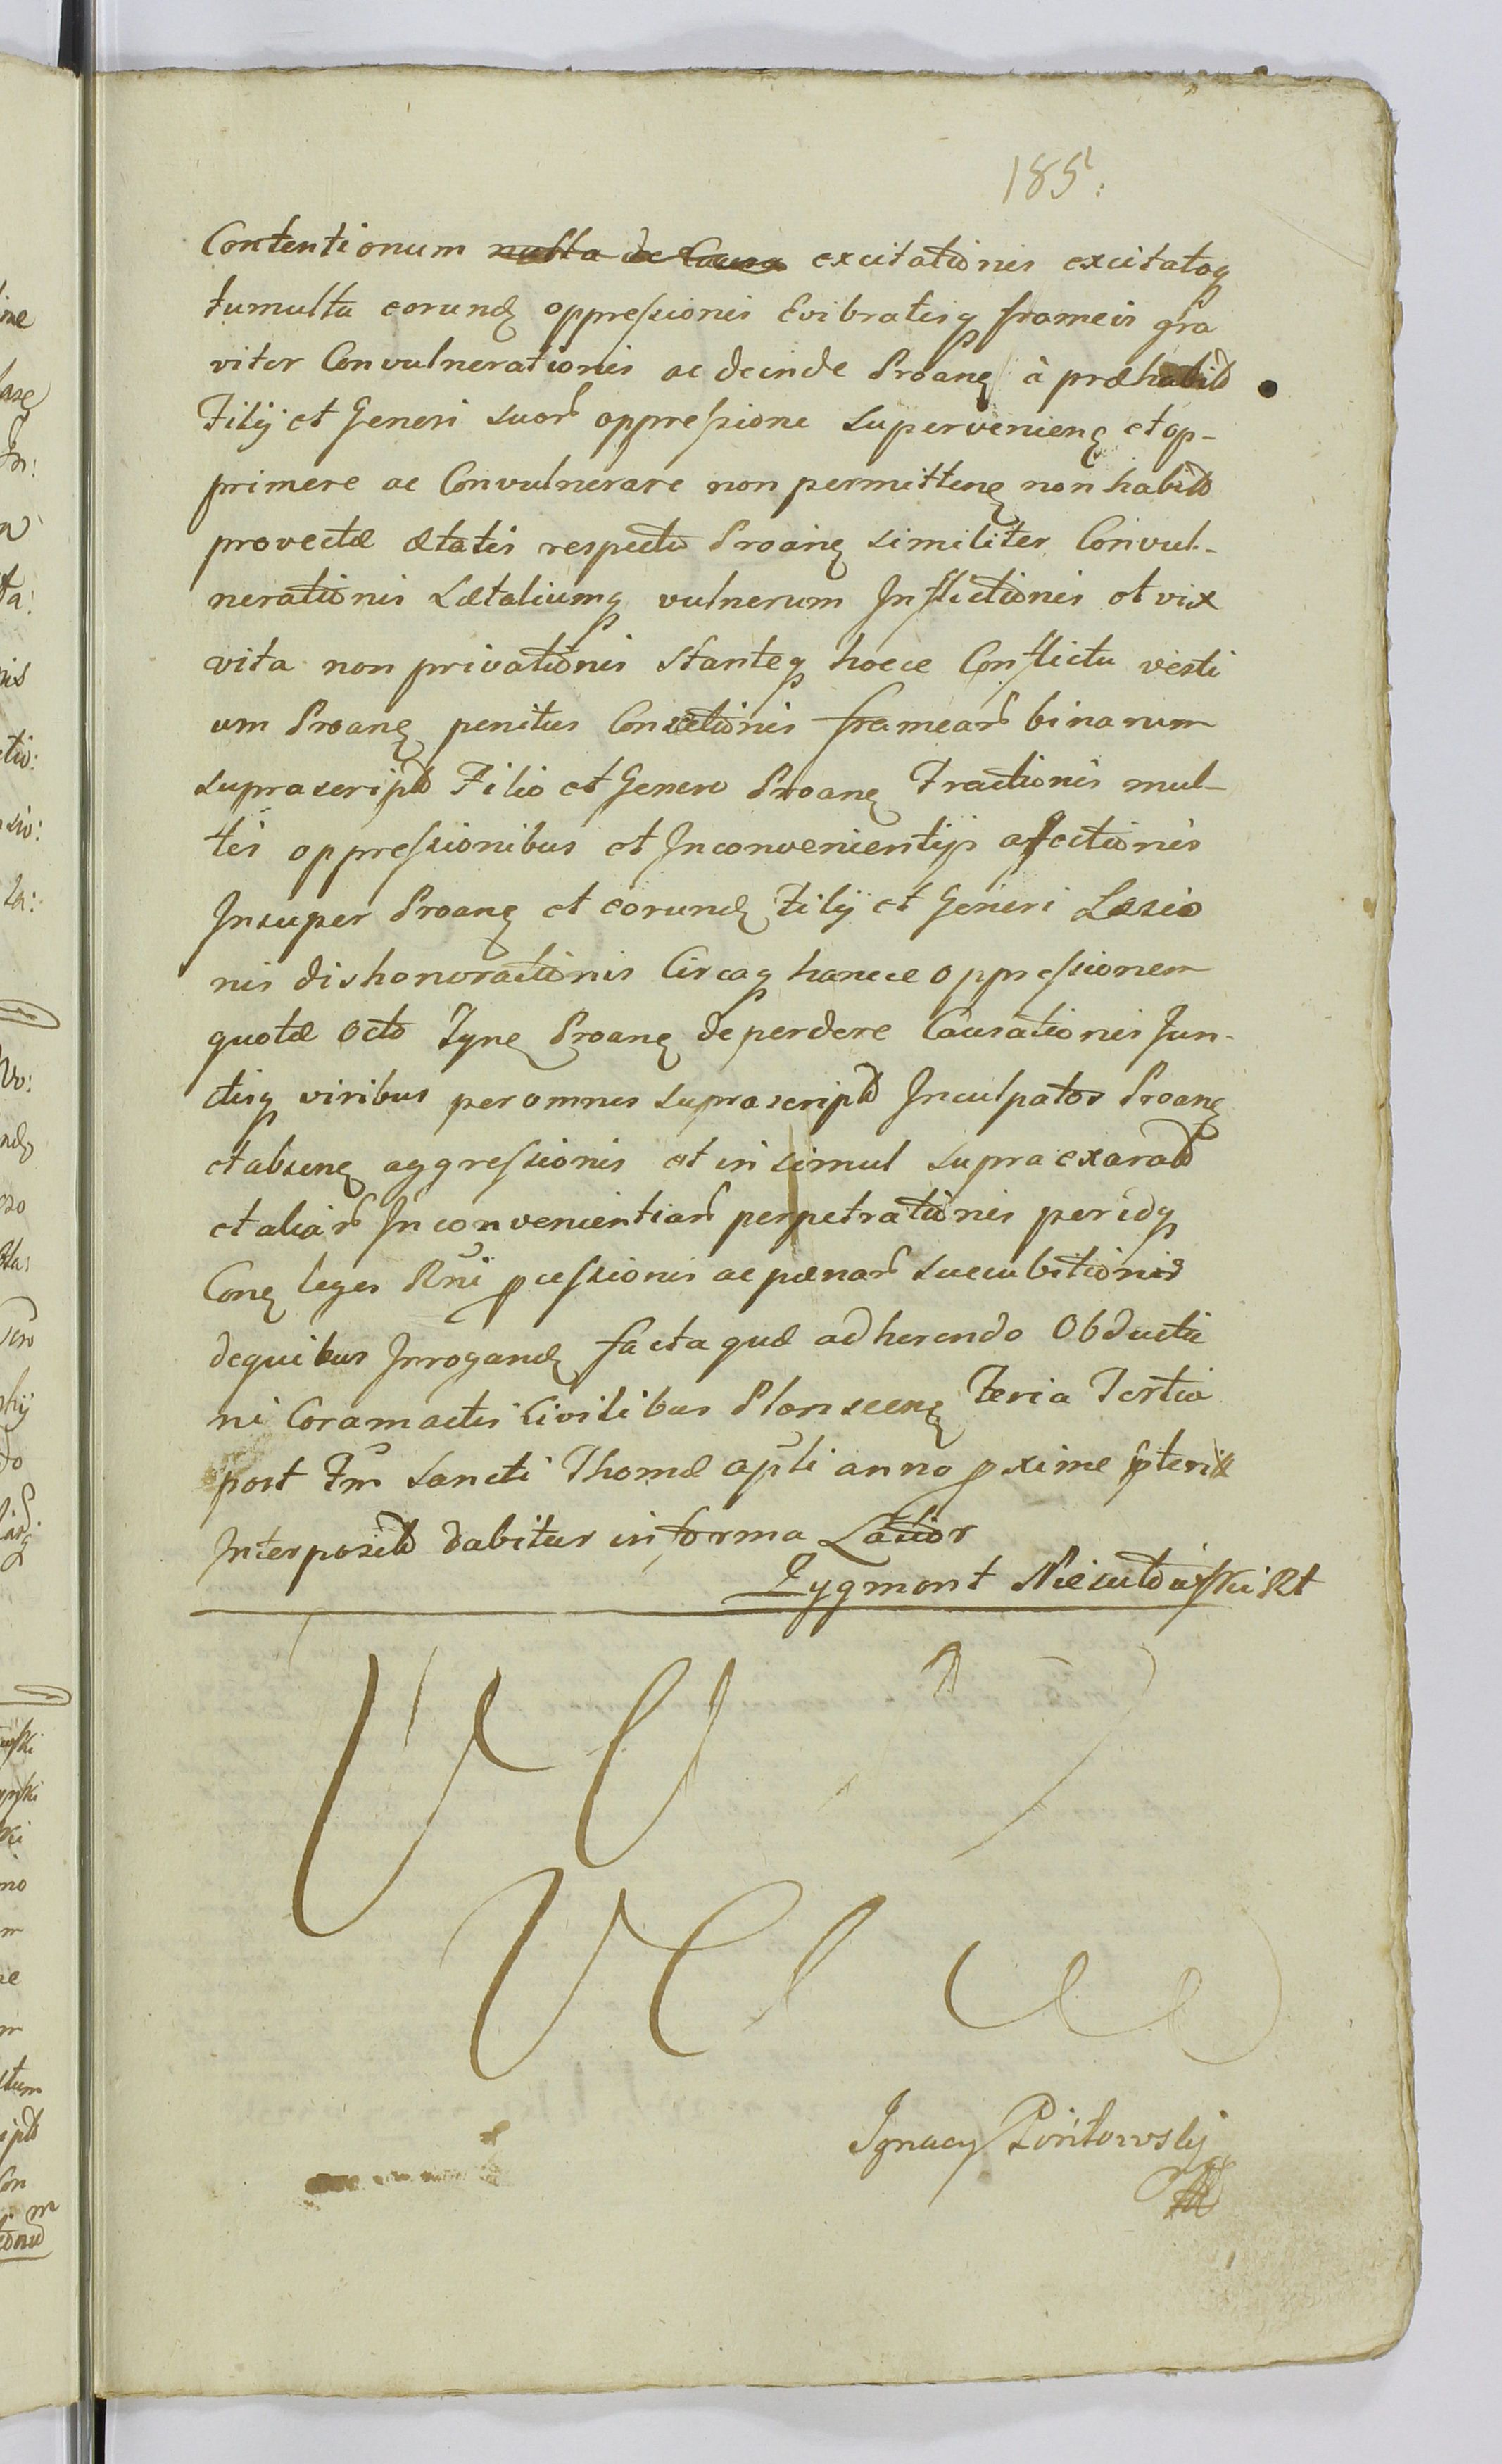 185:
Contentionum nulla de Causa excitationis excitatoq
tumultu eorund oppressionis Evibratisq frameis gra
viter Convulnerationis ac deinde Proang à præhabit
Filij et Generi suor oppressione superveniene et op-
primere ac Convulnerare non permittene non habito
provectæ ætatis respectu Proane similiter Convul-
nerationis Lætaliumq vulnerum Inflictionis et vix
vita non privationis stanteq hocce Conflictu vesti
um Proane penitus Conscetionis framear binarum
suprascript Filio et Genero Proane Fractionis mul-
tis oppressionibus et Inconvenientijs affectionis
Insuper Proane et eorund Filij et Generi Læsio
nis dishonorationis Circaq hancce oppressionem
quotæ octo Tyne Proane deperdere Causationis Jun-
ctisq viribus per omnes suprascript Inculpatos Proane
et absene aggressionis et in simul supra exarat
et aliar Inconvenientiar perpetrationis per idq
Cone leges Rni pcessionis ac pænar succubitionis
de quibus Irrogand facta quæ ad herendo Obductio
ni Coram actis Civilibus Plonscene Feria Tertia
post Fm Sancti Thomæ apli anno pxime pterit
Interposita dabitur in forma Latior
Zygmont Rt
Ignacy